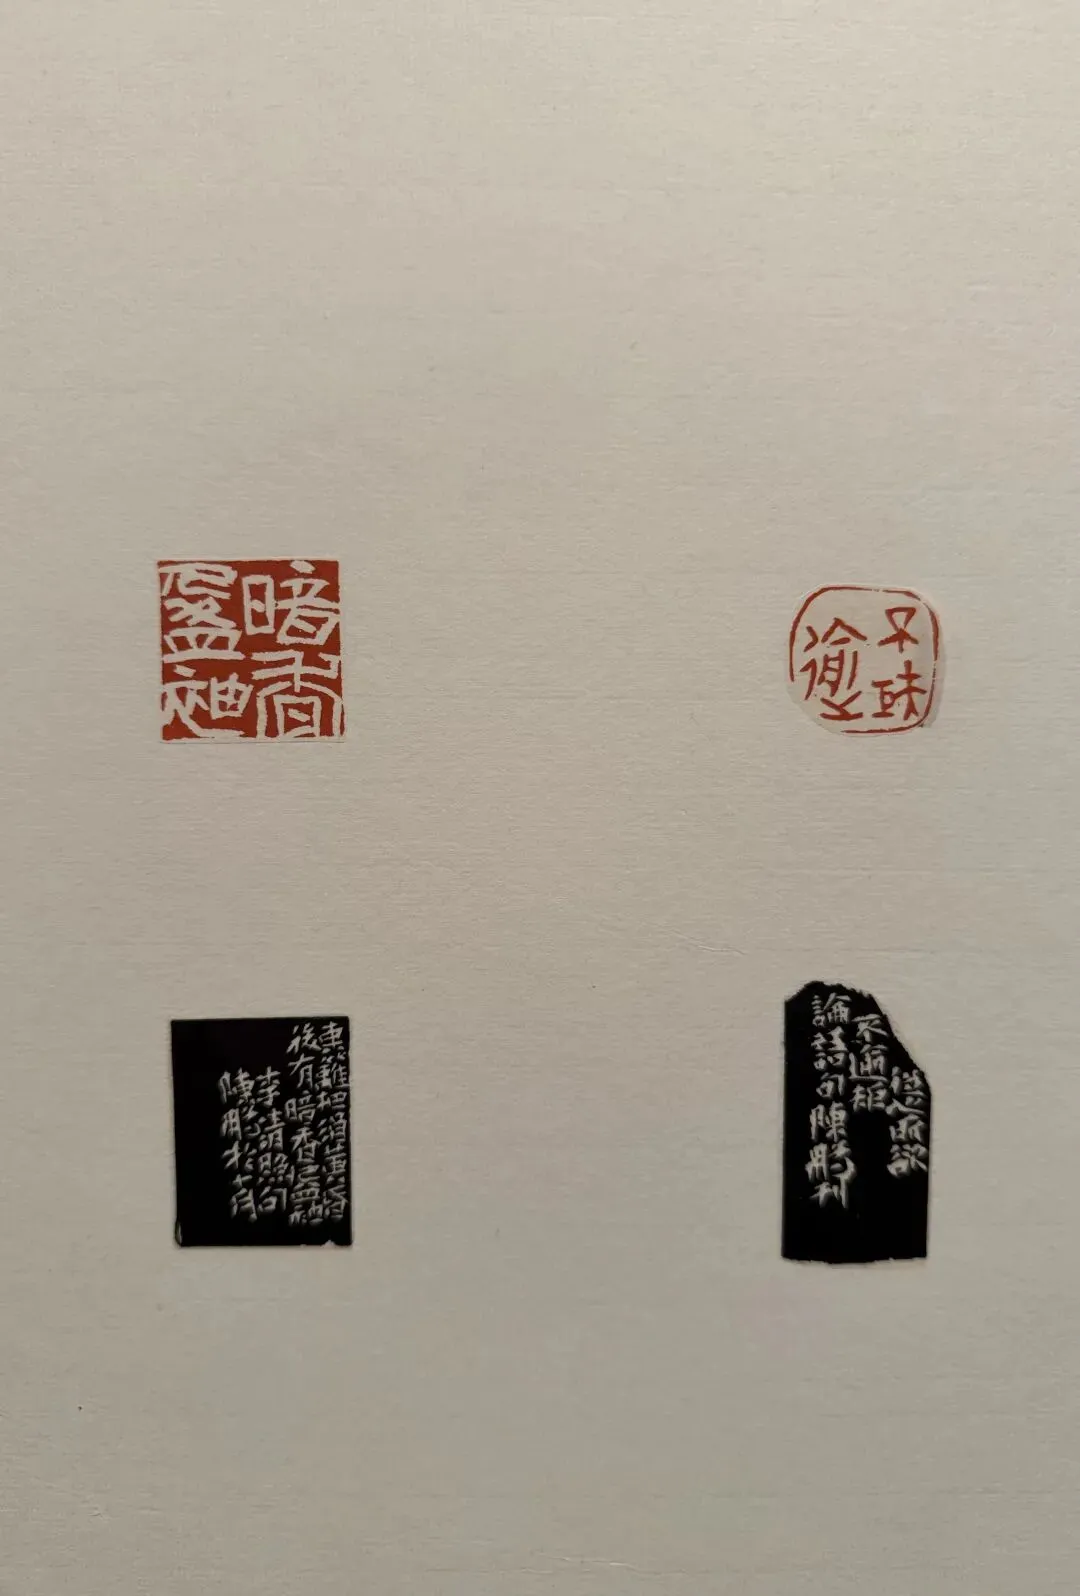 暗香
盈袖
不逾矩
東籬把酒黃昏
後有暗香盈袖
李清照句
陳鵬於十月
從心所欲
不逾矩
論語句陳鵬刊